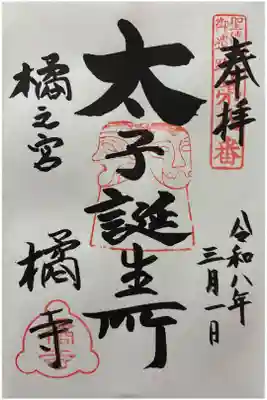 奉拝
令和八年
三月一日
太子誕生所
橘之宮
橘寺